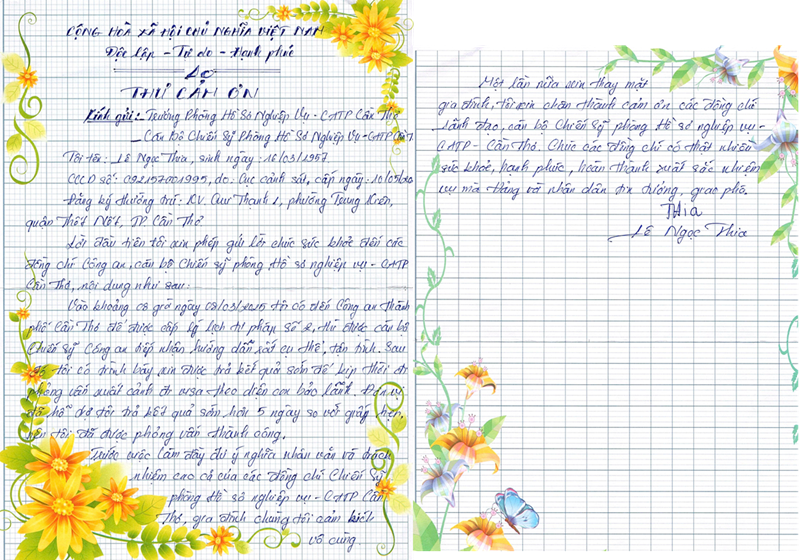 CỘNG HOÀ XÃ HỘI CHỦ NGHĨA VIỆT NAM
Độc lập - Tự do - Hạnh phúc
THƯ CẢM ƠN
Kính gửi: - Trưởng Phòng Hồ Sơ Nghiệp Vụ - CATP Cần Thơ
- Cán bộ Chiến Sỹ Phòng Hồ Sơ Nghiệp Vụ - CATP Cần T
Tôi tên: Lê Ngọc Thia, sinh ngày: 16/03/1957.
CCCD số: 092157001995, do: Cục cảnh sát, cấp ngày: 10/05/20
Đăng ký thường trú: KV. Qui Thạnh 1, phường Trung Kiên,
quận Thốt Nốt, TP Cần Thơ
Lời đầu tiên tôi xin phép gửi lời chúc sức khoẻ đến các
đồng chí Công an, cán bộ Chiến sỹ phòng Hồ sơ nghiệp vụ - CATP
Cần Thơ, nội dung như sau:
Vào khoảng 08 giờ ngày 03/03/2025 tôi có đến Công an Thành
phố Cần Thơ để được cấp lý lịch tư pháp số 2, thì được cán bộ
Chiến Sỹ Công an tiếp nhận hướng dẫn rất cụ thể, tận tình. Sau
đó tôi có trình bày xin được trả kết quả sớm để kịp thời đi
phỏng vấn xuất cảnh đi visa theo diện con bảo lãnh. Đơn vị
đã hỗ trợ tôi trả kết quả sớm hơn 5 ngày so với giấy hẹn,
nên tôi đã được phỏng vấn thành công.
Trước việc làm đầy ý nghĩa nhân văn và trách
nhiệm cao cả của các đồng chí Chiến Sỹ
phòng Hồ sơ nghiệp vụ - CATP Cần
Thơ, gia đình chúng tôi cảm kích
vô cùng
Một lần nữa xin thay mặt
gia đình, tôi xin chân thành cám ơn các đồng chí
lãnh đạo, cán bộ Chiến Sỹ phòng Hồ sơ nghiệp vụ -
CATP - Cần Thơ. Chúc các đồng chí có thật nhiều
sức khoẻ, hạnh phúc, hoàn thành xuất sắc nhiệm
vụ mà Đảng và nhân dân tin tưởng, giao phó.
Thia
Lê Ngọc Thia